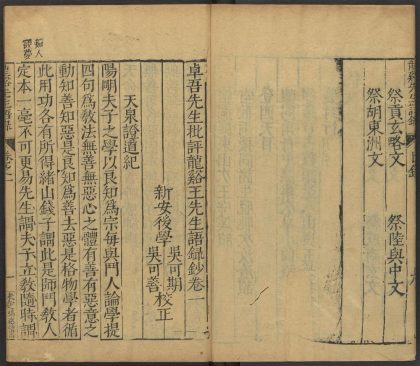 祭貢玄略文　祭陸與中文
祭胡東洲文
卓吾先生批評龍谿王先生語錄鈔卷一
新安後學　吳可期
吳可善　校正
天泉證道紀
陽明夫子之學以良知為宗每與門人論學提
四句為教法無善無惡心之體有善有惡意之
動知善知惡是良知為善去惡是格物學者循
此用功各有所得緒山錢子謂此是師門教人
定本一毫不可更易先生謂夫子立教隨時謂